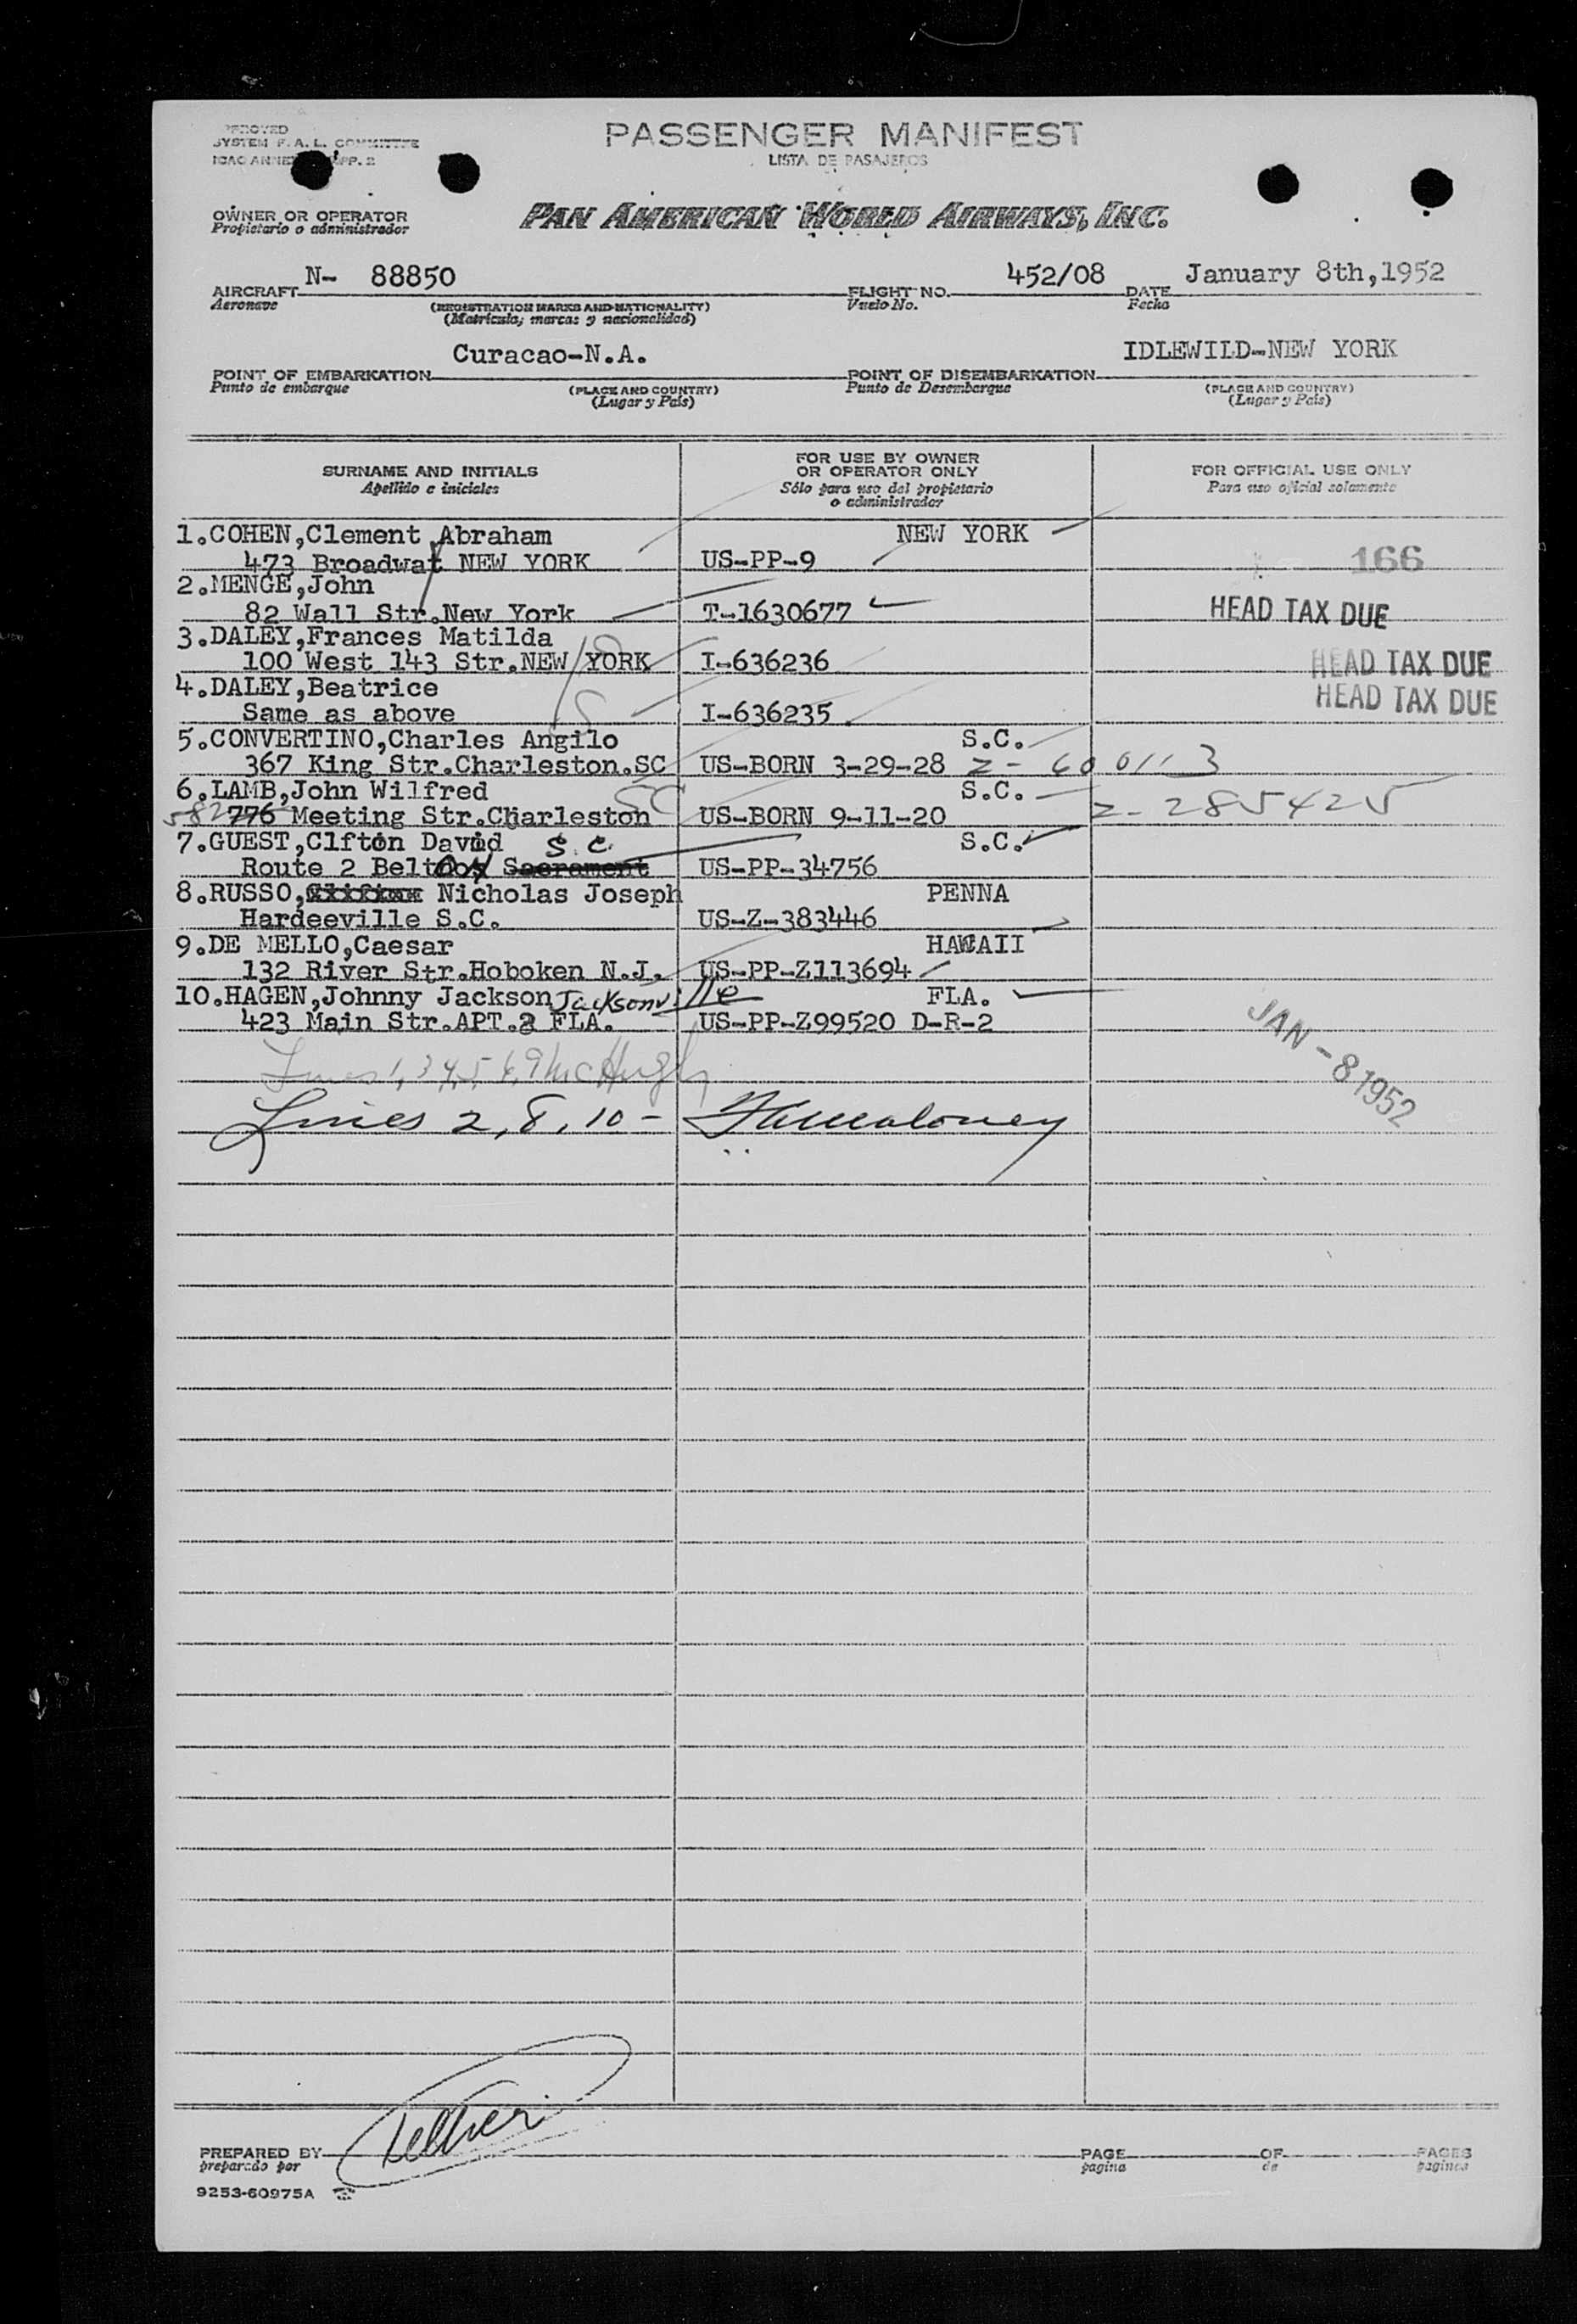 PROVED
SYSTEM F. A. L. COMMITTEE
ICAO ANNE PP. 2
PASSENGER MANIFEST
LISTA DE PASAJEROS
OWNER OR OPERATOR
Propietario o administrador
PAN AMERICAN WORLD AIRWAYS, INC.
AIRCRAFT N- 88850 FLIGHT NO. 452/08 DATE January 8th,1952
Aeronave (REGISTRATION MARKS AND NATIONALITY) Vuelo No. Fecha
(Matricula, marcas y nacionalidad)
POINT OF EMBARKATION Curacao-N.A. POINT OF DISEMBARKATION IDLEWILD-NEW YORK
Punto de embarque (PLACE AND COUNTRY) Punto de Desembarque (PLACE AND COUNTRY)
(Lugar y Pais) (Lugar y Pais)
SURNAME AND INITIALS
Apellido e iniciales
FOR USE BY OWNER
OR OPERATOR ONLY
Sólo para uso del propietario
o administrador
FOR OFFICIAL USE ONLY
Para uso oficial solamente
1.COHEN,Clement Abraham NEW YORK
473 Broadwat NEW YORK US-PP-9 166
2.MENGE,John
82 Wall Str.New York T-1630677 HEAD TAX DUE
3.DALEY,Frances Matilda
100 West 143 Str.NEW YORK I-636236 HEAD TAX DUE
4.DALEY,Beatrice HEAD TAX DUE
Same as above I-636235
5.CONVERTINO,Charles Angilo S.C.
367 King Str.Charleston.SC US-BORN 3-29-28 Z- 600113
6.LAMB,John Wilfred SC S.C.
582 776 Meeting Str.Charleston US-BORN 9-11-20 Z-285425
7.GUEST,Clfton David S.C. S.C.
Route 2 Belton Sacrament US-PP-34756
8.RUSSO, Nicholas Joseph PENNA
Hardeeville S.C. US-Z-383446
9.DE MELLO,Caesar HAWAII
132 River Str.Hoboken N.J. US-PP-Z113694
10.HAGEN,Johnny Jackson Jacksonville FLA.
423 Main Str.APT.2 FLA. US-PP-Z99520 D-R-2
JAN -8 1952
Lines 1,3,4,5,6,9 McHugh
Lines 2, 8, 10 -
PREPARED BY PAGE OF PAGES
preparado por pagina de paginas
9253-60975A